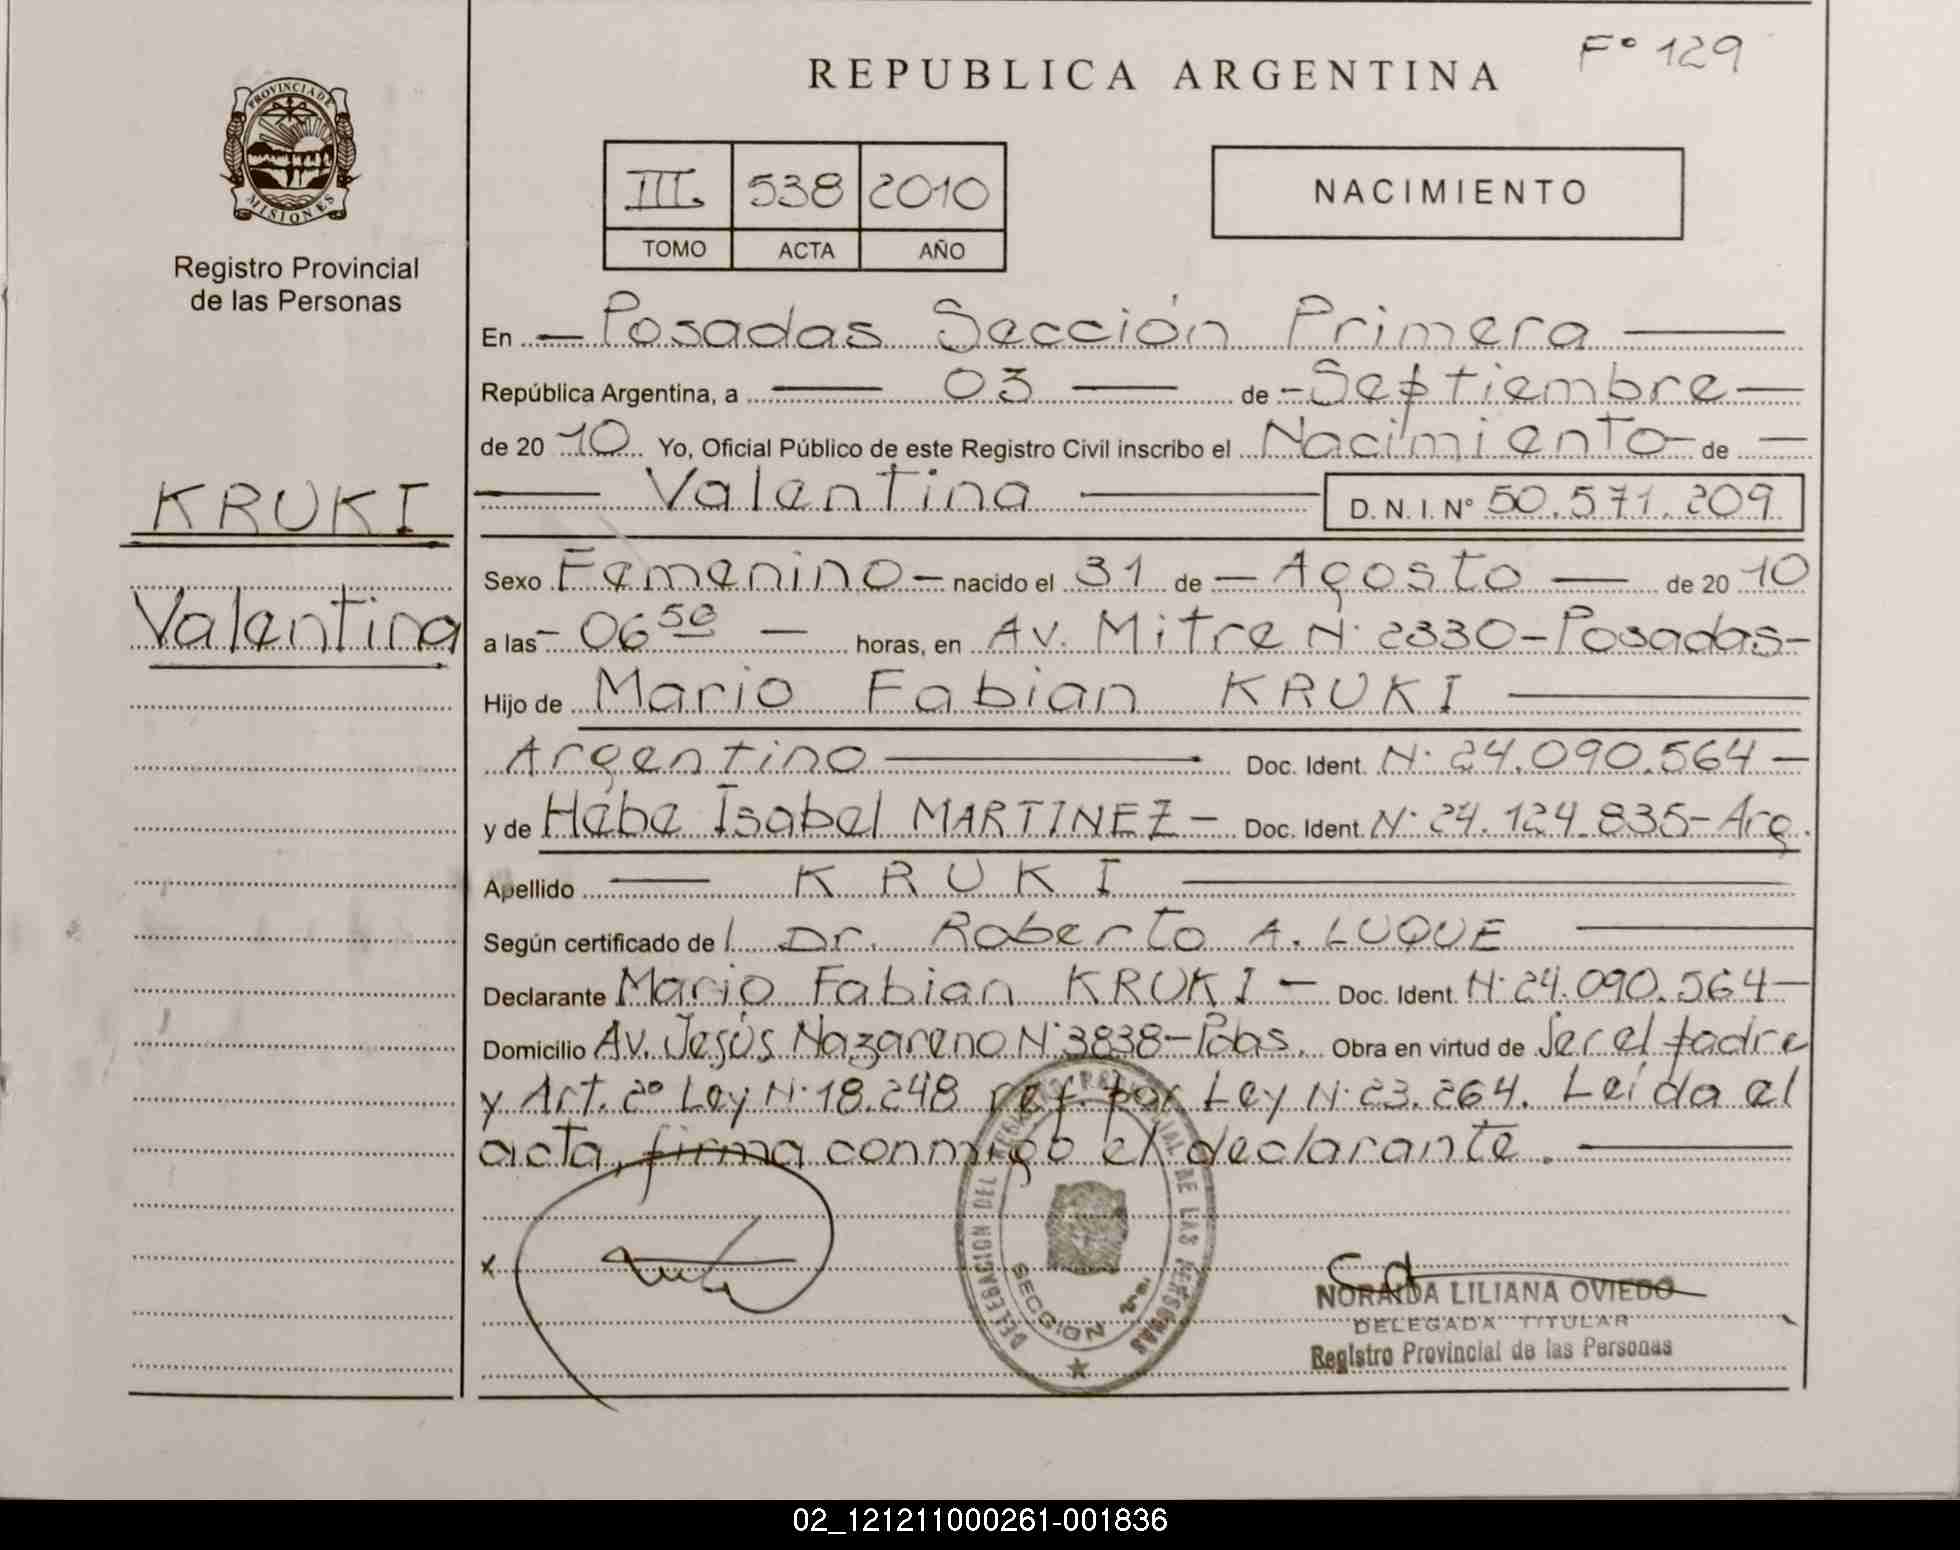 F° 129
REPUBLICA ARGENTINA
PROVINCIA DE
MISIONES
Registro Provincial
de las Personas
III. 538 2010
TOMO ACTA AÑO
NACIMIENTO
En Posadas Sección Primera
República Argentina, a 03 de Septiembre
de 20 10 Yo, Oficial Público de este Registro Civil inscribo el Nacimiento de
KRUKI
Valentina
Valentina D. N. I. N° 50.571.209
Sexo Femenino nacido el 31 de Agosto de 20 10
a las 06 50 horas, en Av. Mitre N° 2330-Posadas-
Hijo de Mario Fabian KRUKI
Argentino Doc. Ident. N° 24.090.564
y de Hebe Isabel MARTINEZ Doc. Ident. N° 24.124.835-Arg.
Apellido KRUKI
Según certificado de l Dr. Roberto A. LUQUE
Declarante Mario Fabian KRUKI Doc. Ident. N° 24.090.564
Domicilio Av. Jesús Nazareno N° 3838-Pdas. Obra en virtud de Ser el padre
y Art. 2° Ley N° 18.248 ref. por Ley N° 23.264. Leída el
acta, firma conmigo el declarante.
x
DELEGACION DEL REGISTRO PROVINCIAL DE LAS PERSONAS
SECCION
NORAIDA LILIANA OVIEDO
DELEGADA TITULAR
Registro Provincial de las Personas
02_121211000261-001836